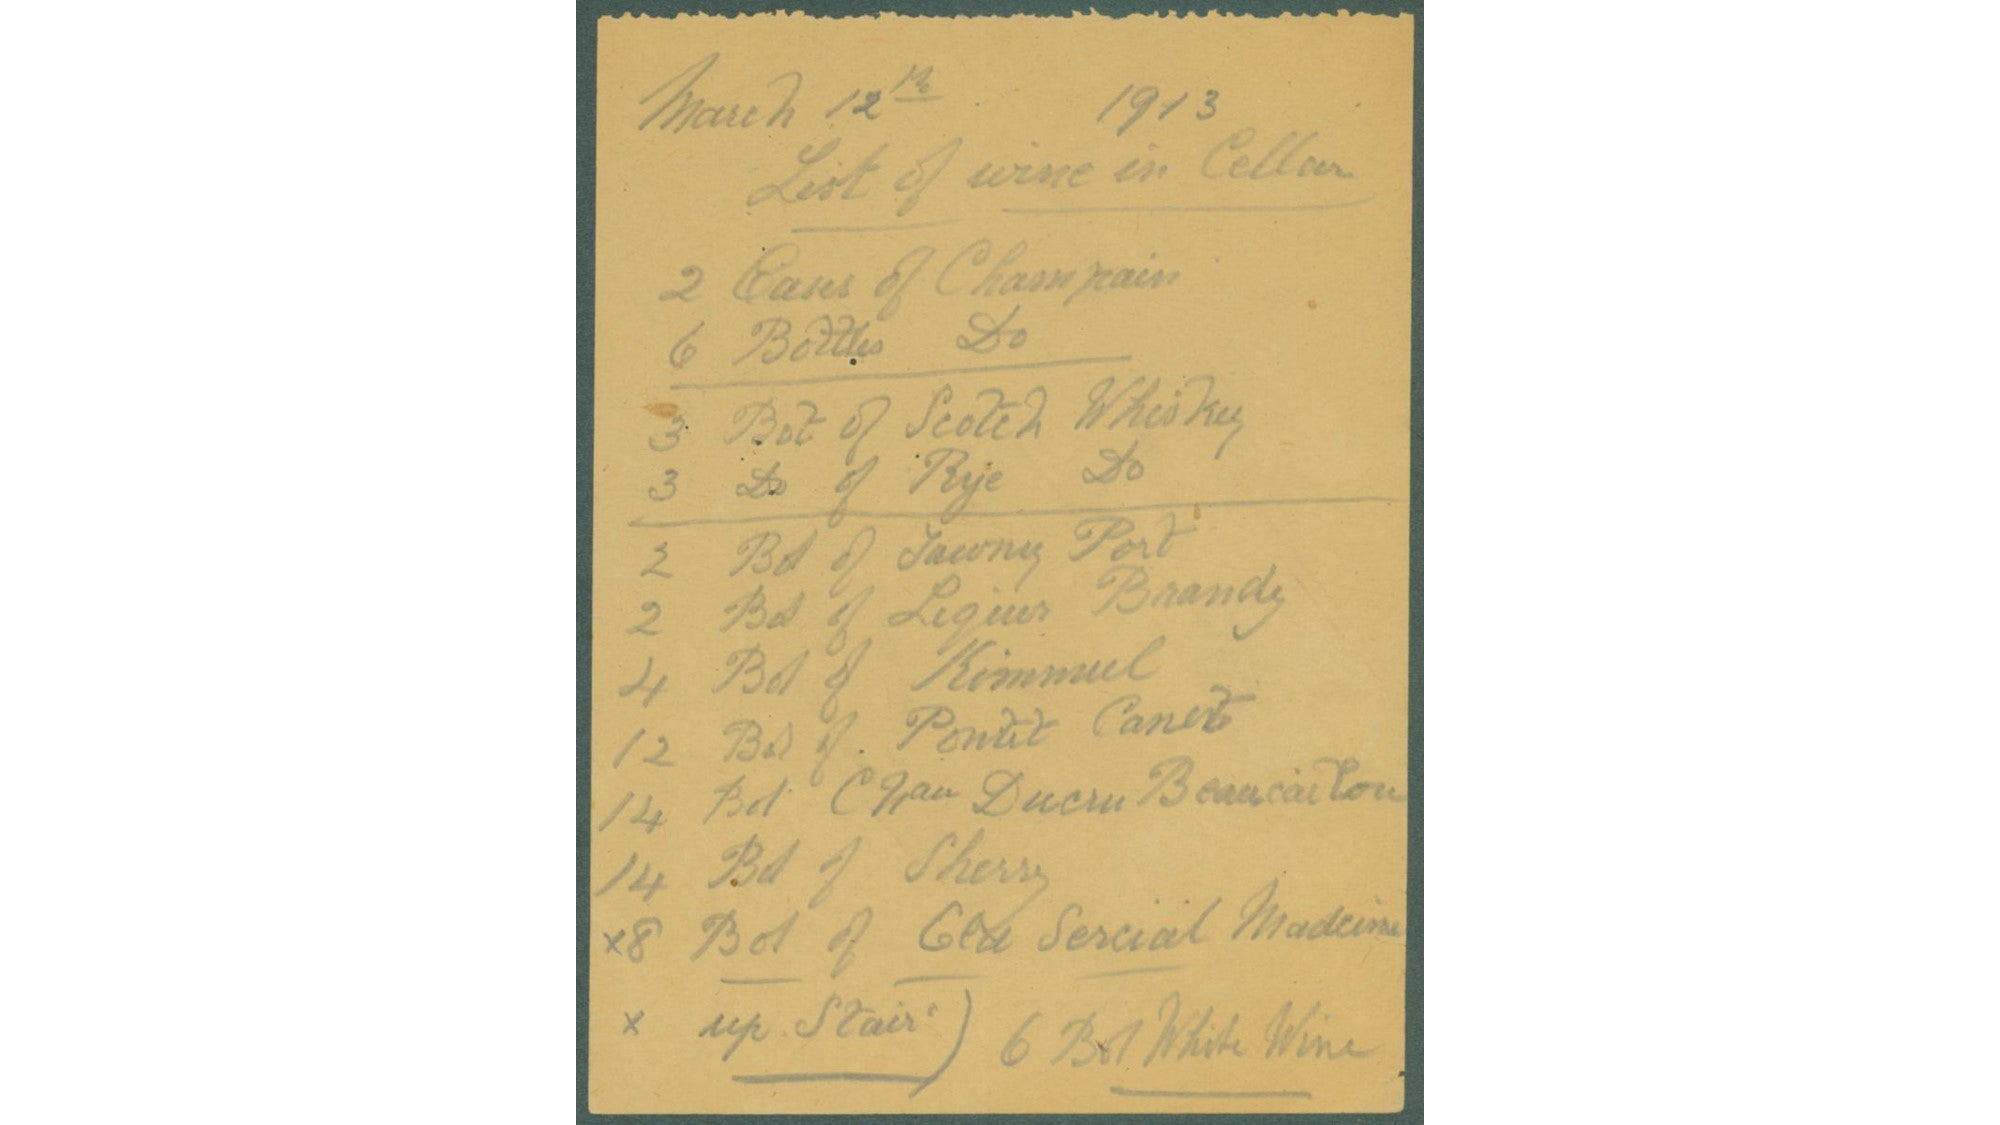 March 12th 1913
List of wine in Cellar
2 Cases of Champain
6 Bottles Do
3 Bot of Scotch Whiskey
3 Do of Rye Do
2 Bot of Tawny Port
2 Bot of Liqiur Brandy
4 Bot of Kimmul
12 Bot of Pontet Canet
14 Bot Chau Ducru Beaucaillou
14 Bot of Sherry
x8 Bot of Old Sercial Madeira
x up Stair) 6 Bot White Wine